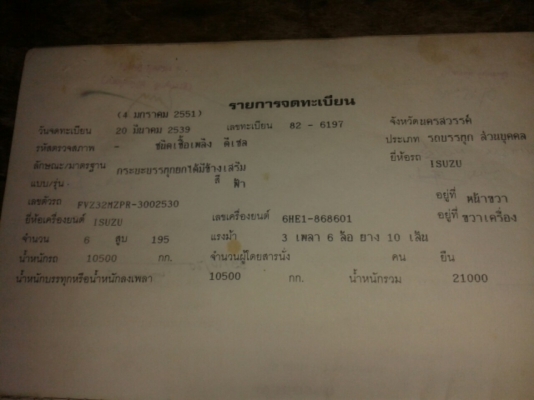 รายการจดทะเบียน
(4 มกราคม 2551)
วันจดทะเบียน 20 มีนาคม 2539 เลขทะเบียน 82 - 6197 จังหวัดนครสวรรค์
รหัสตรวจสภาพ - ชนิดเชื้อเพลิง ดีเซล ประเภท รถบรรทุก ส่วนบุคคล
ลักษณะ/มาตรฐาน กระบะบรรทุกยกได้มีข้างเสริม ยี่ห้อรถ ISUZU
แบบ/รุ่น สี ฟ้า
เลขตัวรถ FVZ32MZPR-3002530 อยู่ที่ หน้าขวา
ยี่ห้อเครื่องยนต์ ISUZU เลขเครื่องยนต์ 6HE1-868601 อยู่ที่ ขวาเครื่อง
จำนวน 6 สูบ 195 แรงม้า 3 เพลา 6 ล้อ ยาง 10 เส้น
น้ำหนักรถ 10500 กก. จำนวนผู้โดยสารนั่ง คน ยืน
น้ำหนักบรรทุกหรือน้ำหนักลงเพลา 10500 กก. น้ำหนักรวม 21000